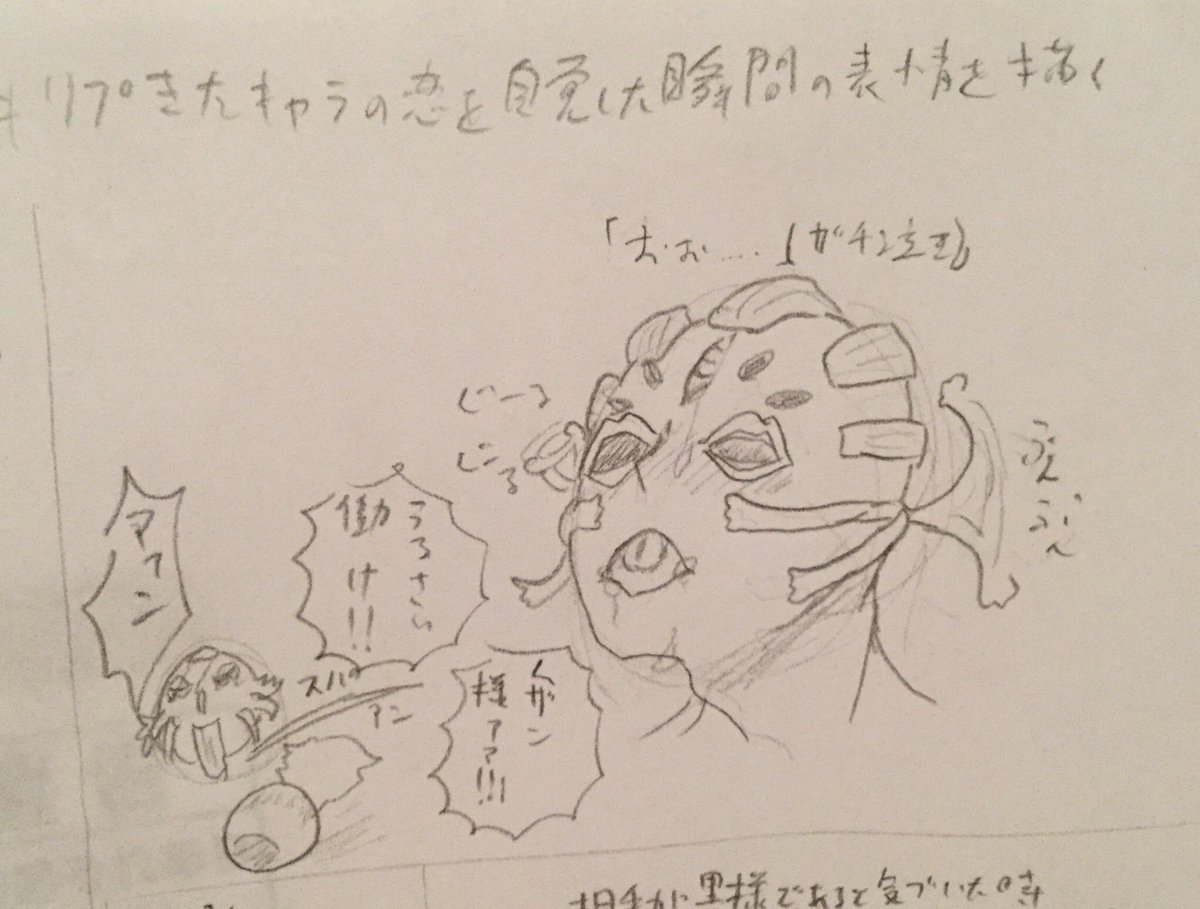 #リプきたキャラの恋を自覚した瞬間の表情を描く
「おお....【ガチン泣き】
じーる
じーる
ぶん
ぶん
うるさい
働け!!
アァン
スパ
アン
様アア!!!
相手が黒様であると気づいた時